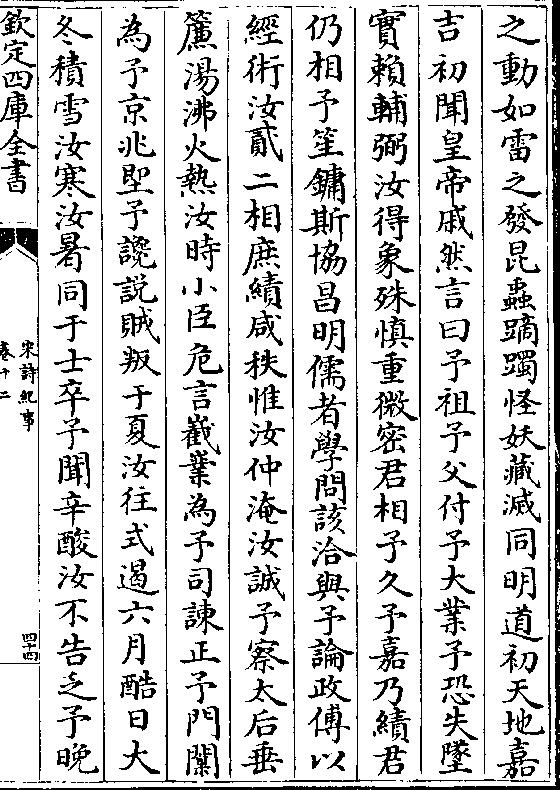 之動如雷之發昆蟲蹢躅怪妖藏滅同明道初天地嘉
吉初聞皇帝戚然言曰予祖予父付予大業予恐失墜
實賴輔弼汝得象殊慎重微密君相予久予嘉乃績君
仍相予笙鏞斯協昌明儒者學問該洽與予論政傅以
經術汝貳二相庶績咸秩惟汝仲淹汝誠予察太后垂
簾湯沸火熱汝時小臣危言嶻業為予司諫正予門闑
為予京兆聖予讒説賊叛于夏汝往式遏六月酷日大
冬積雪汝寒汝暑同于士卒予聞辛酸汝不告乏予晚
欽定四庫全書
宋詩紀事
卷十二
四十四